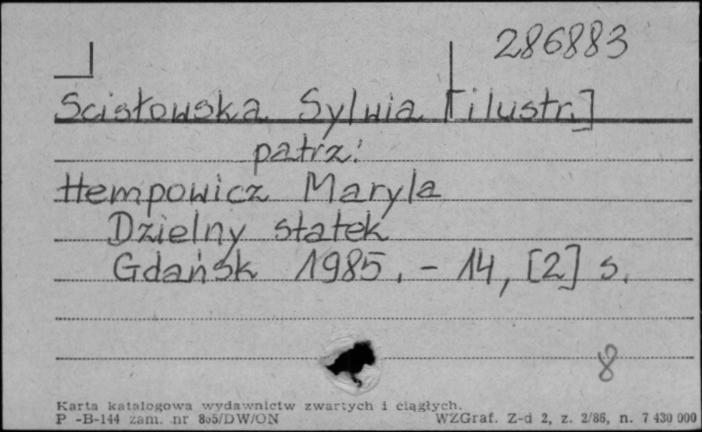 286883
Scisłowska Sylwia [ilustr.]
patrz:
Hempowicz Maryla
Dzielny statek
Gdańsk 1985. - 14, [2] s.
8
Karta katalogowa wydawnictw zwartych i ciągłych.
P -B-144 zam. nr 805/DW/ON WZGraf. Z-d 2, z. 2/86, n. 7 430 000